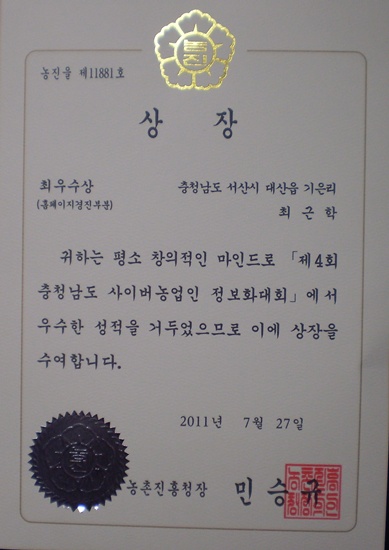 농진
농진을 제11881호
상 장
최우수상 충청남도 서산시 대산읍 기은리
(홈페이지경진부분) 최 근 학
귀하는 평소 창의적인 마인드로 「제4회
충청남도 사이버농업인 정보화대회」에서
우수한 성적을 거두었으므로 이에 상장을
수여합니다.
2011년 7월 27일
농촌진흥청장 민 승 규